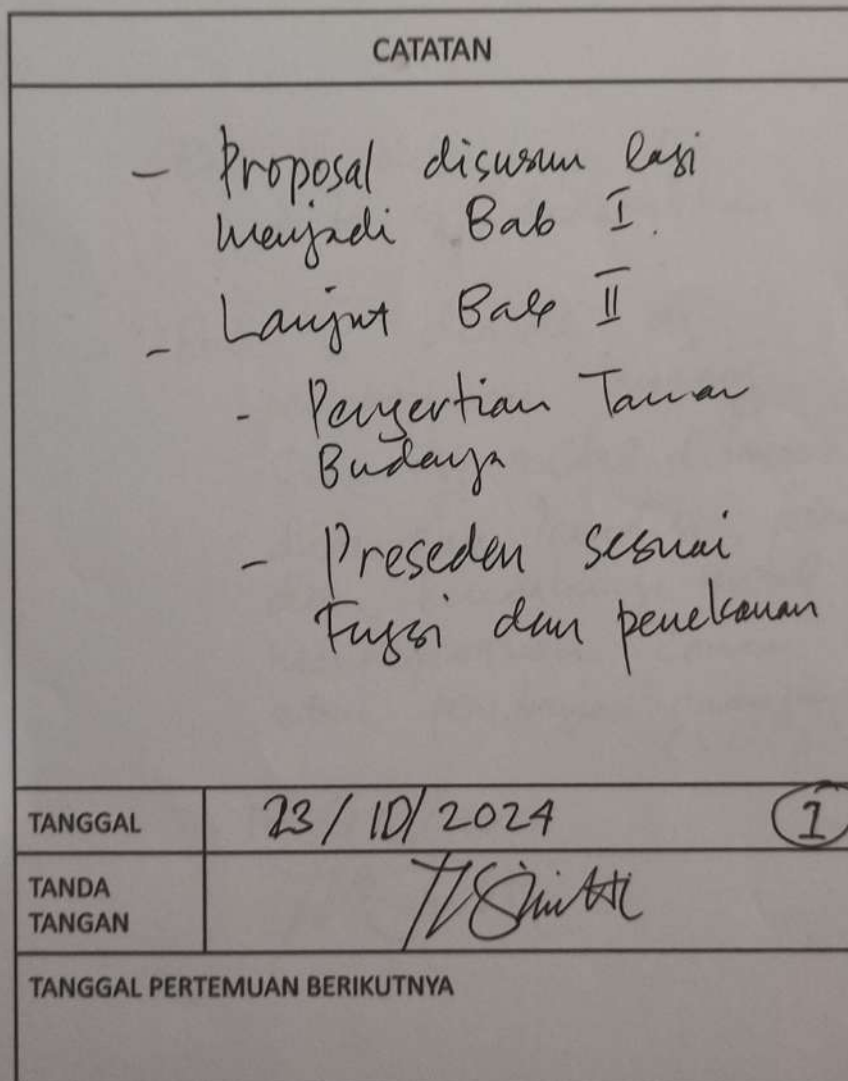 CATATAN
- Proposal disusun lagi
menjadi Bab I.
- Lanjut Bab II
- Pengertian Taman
Budaya
- Preseden sesuai
Fugsi dan penekanan
TANGGAL 23/10/2024 1
TANDA
TANGAN
TANGGAL PERTEMUAN BERIKUTNYA